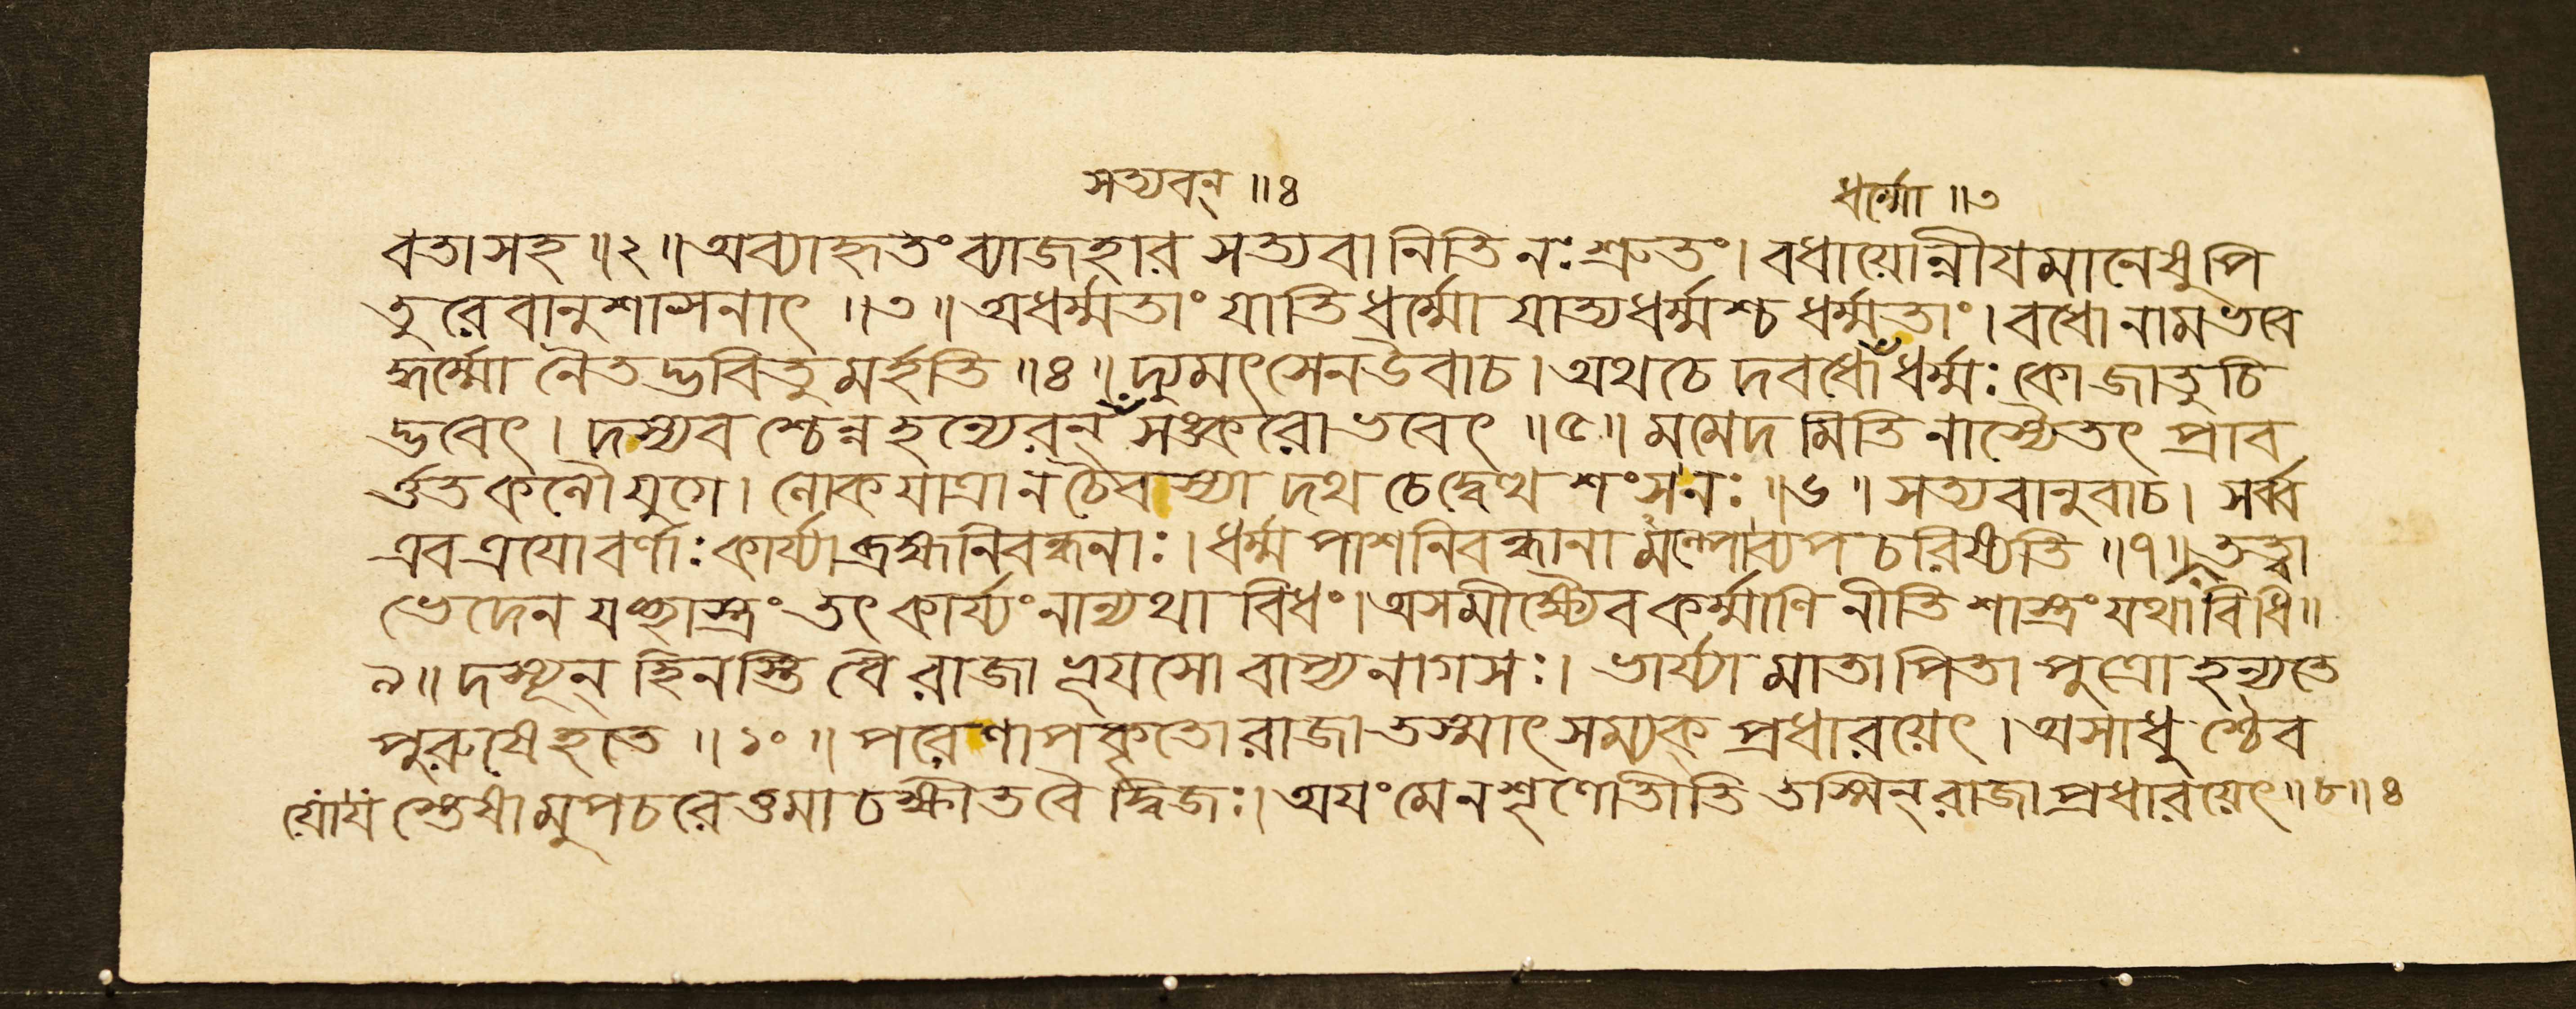 সত্যবন্ ॥৪
ধর্ম্মো ॥৩
বতা সহ ॥২॥ অব্যাহৃতং ব্যাজহার সত্যবানিতি নঃ শ্রুতং। বধায়োন্নীযমানেষু পি
তুরেবানুশাসনাৎ ॥৩॥ অধর্ম্মতাং যাতি ধর্ম্মো যাত্যধর্ম্মশ্চ ধর্ম্মতাং। বধো নাম ভবে
দ্ধর্ম্মো নৈতদ্ভবিতুমর্হতি ॥৪॥ দ্যুমৎসেন উবাচ। অথ চেদবধো ধর্ম্মঃ কো জাতুচি
দ্ভবেৎ। দস্যবশ্চেন্ন হন্যেরন্ সঙ্করো ভবেৎ ॥৫॥ মমেদমিতি নাস্যৈতৎ প্রাব
র্ত্তত কলৌ যুগে। লোকযাত্রা ন চৈব স্যাদথ চেদ্বেত্থ শংস নঃ ॥৬॥ সত্যবানুবাচ। সর্ব্ব
এব ত্রযো বর্ণাঃ কার্য্যা ব্রহ্মনিবন্ধনাঃ। ধর্ম্মপাশনিবন্ধানামল্পোব্যপচরিষ্যতি ॥৭॥ তত্ত্বা
ভেদেন যচ্ছাস্ত্রং তৎ কার্য্যং নান্যথা বিধং। অসমীক্ষ্যৈব কর্ম্মাণি নীতিশাস্ত্রং যথাবিধি॥
৯॥ দস্যূন্ হিনস্তি বৈ রাজা ভূযসো বাপ্যনাগসঃ। ভার্য্যা মাতা পিতা পুত্রো হন্যতে
পুরুষে হতে ॥১০॥ পরেণাপকৃতো রাজা তস্মাৎ সম্যক্ প্রধারয়েৎ। অসাধুশ্চৈব
যো যস্তেষামুপচরেত্তমাচক্ষীত বৈ দ্বিজঃ। অযং মে ন শৃণোতীতি তস্মিন্ রাজা প্রধারয়েৎ॥৮॥৪